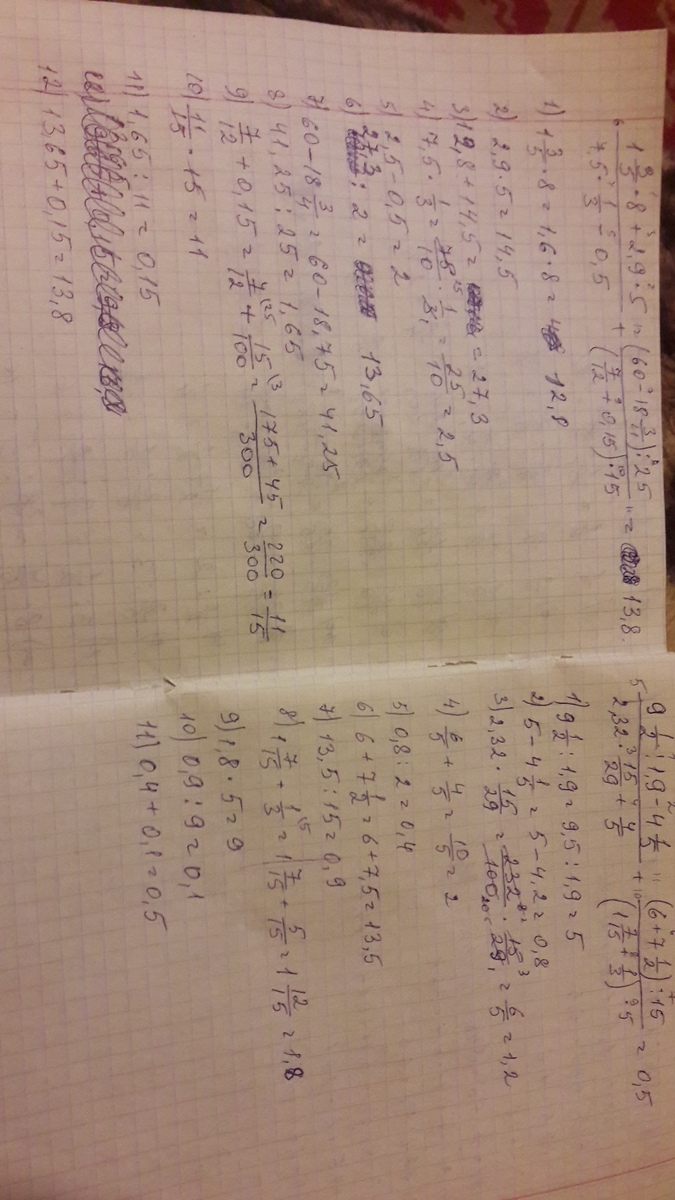 (1 3/5 · 8 + 2,9 · 5) / (7,5 · 1/3 − 0,5) + ((60 − 18 3/4) : 25) / ((7/12 + 0,15) · 15) = 13,8.
1) 1 3/5 · 8 = 1,6 · 8 = 12,8
2) 2,9 · 5 = 14,5
3) 12,8 + 14,5 = 27,3
4) 7,5 · 1/3 = 75/10 · 1/3 = 25/10 = 2,5
5) 2,5 − 0,5 = 2
6) 27,3 : 2 = 13,65
7) 60 − 18 3/4 = 60 − 18,75 = 41,25
8) 41,25 : 25 = 1,65
9) 7/12 + 0,15 = 7/12 + 15/100 = (175 + 45)/300 = 220/300 = 11/15
10) 11/15 · 15 = 11
11) 1,65 : 11 = 0,15
12) 13,65 + 0,15 = 13,8
(9 1/2 : 1,9 − 4 1/5) / (2,32 · 15/29 + 4/5) + ((6 + 7 1/2) : 15) / ((1 7/15 + 1/3) · 5) = 0,5
1) 9 1/2 : 1,9 = 9,5 : 1,9 = 5
2) 5 − 4 1/5 = 5 − 4,2 = 0,8
3) 2,32 · 15/29 = 232/100 · 15/29 = 6/5 = 1,2
4) 6/5 + 4/5 = 10/5 = 2
5) 0,8 : 2 = 0,4
6) 6 + 7 1/2 = 6 + 7,5 = 13,5
7) 13,5 : 15 = 0,9
8) 1 7/15 + 1/3 = 1 7/15 + 5/15 = 1 12/15 = 1,8
9) 1,8 · 5 = 9
10) 0,9 : 9 = 0,1
11) 0,4 + 0,1 = 0,5